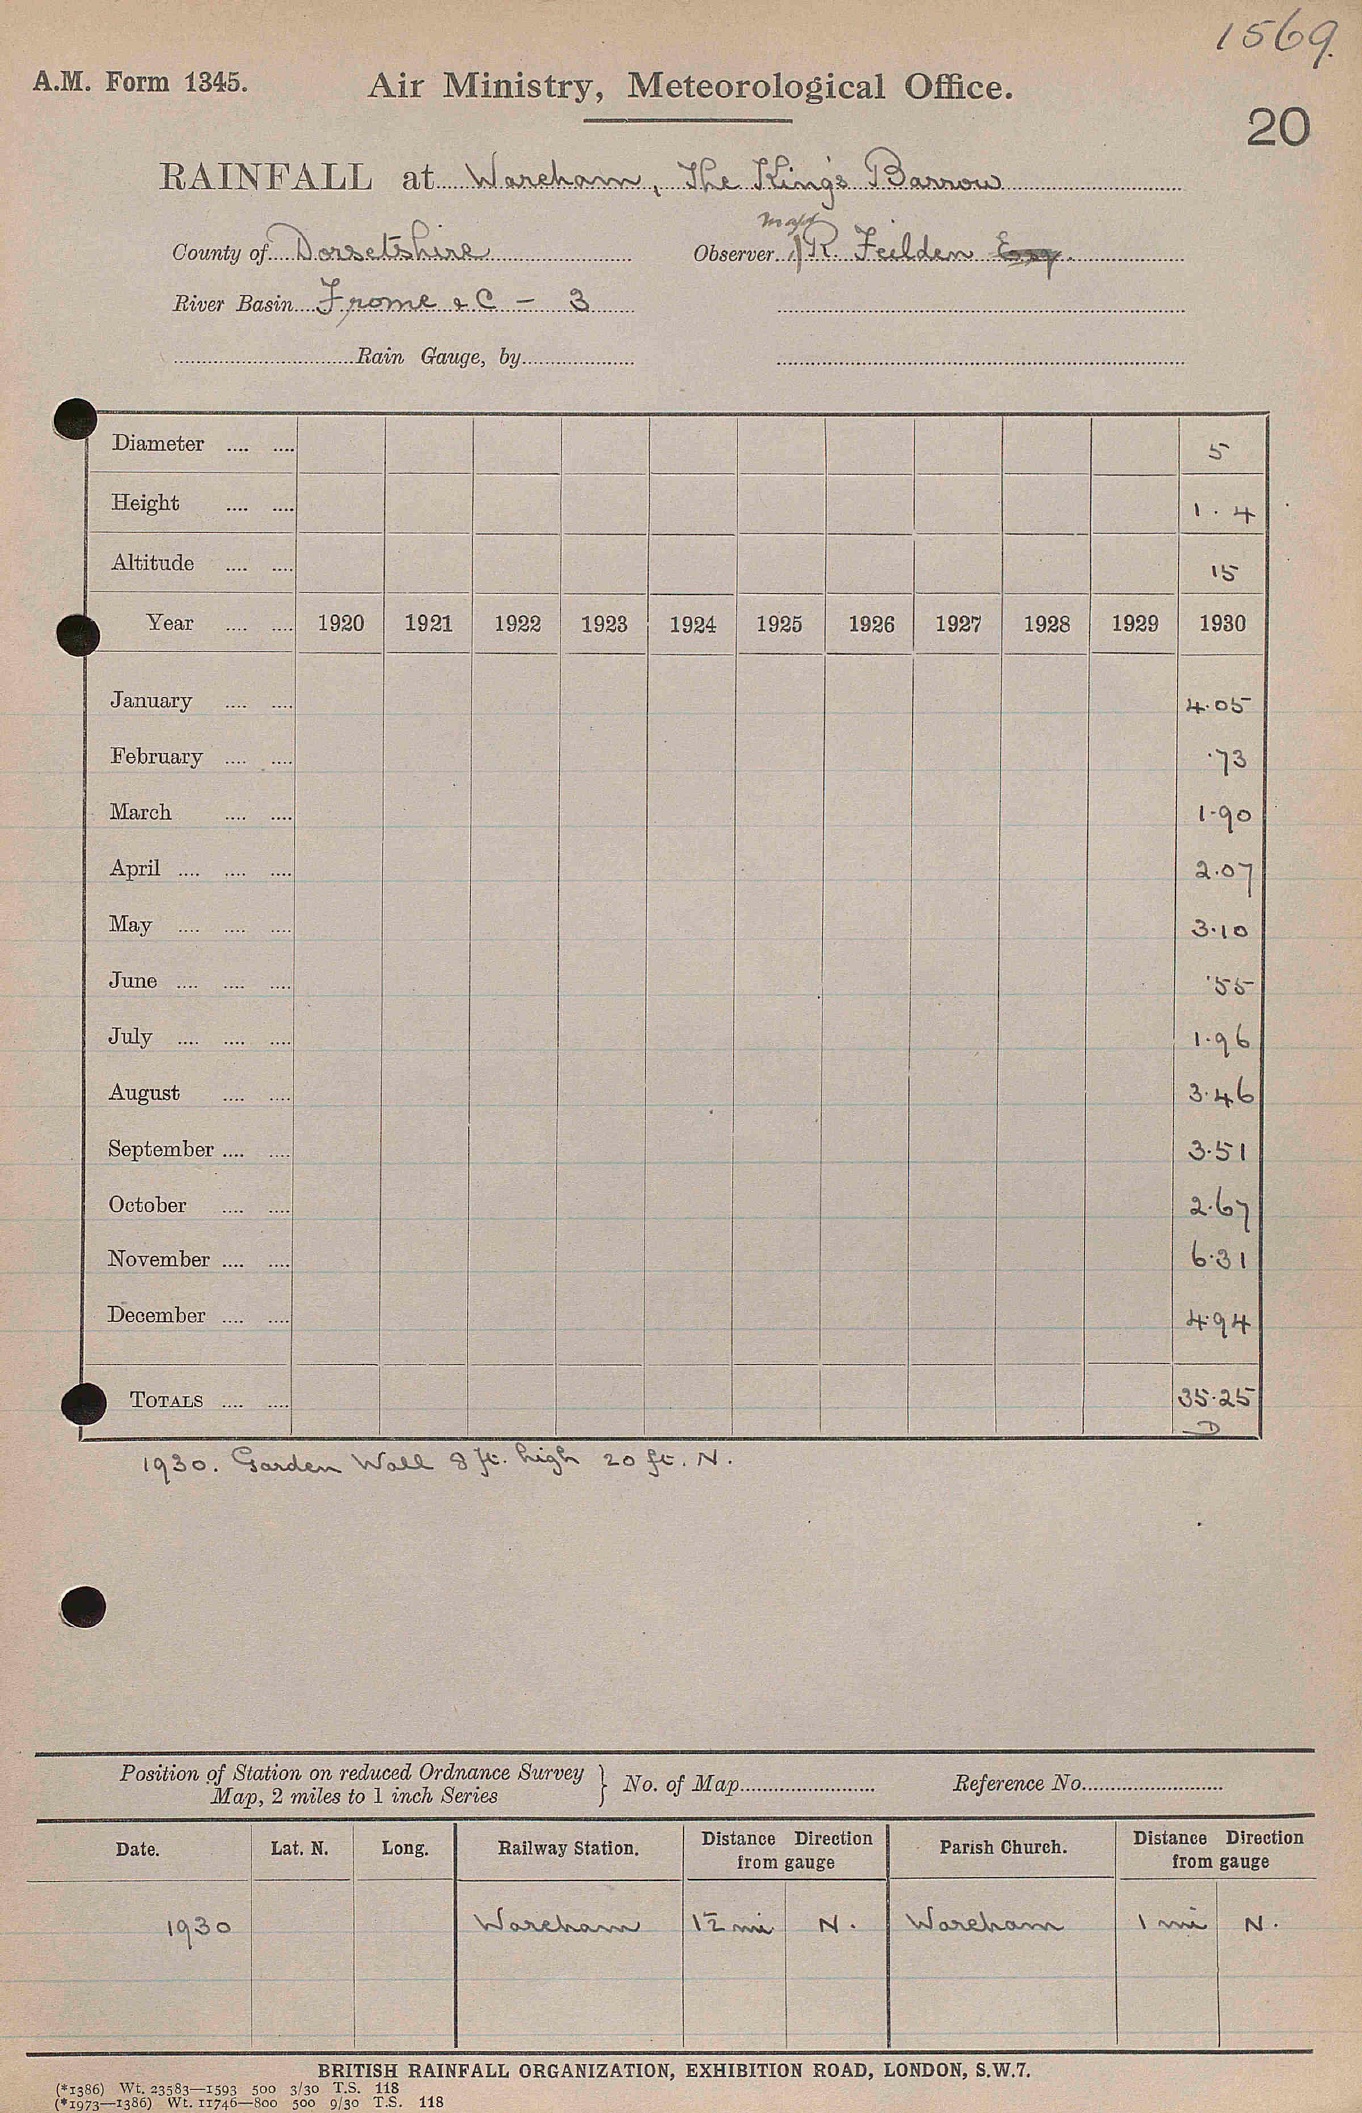 1569.
A.M. Form 1345. Air Ministry, Meteorological Office.
20
RAINFALL at Wareham, The King's Barrow
County of Dorsetshire Observer Major R. Feilden Esq.
River Basin Frome &C – 3
Rain Gauge, by
Diameter .... .... 5
Height .... .... 1 . 4
Altitude .... .... 15
Year .... .... 1920 1921 1922 1923 1924 1925 1926 1927 1928 1929 1930
January .... .... 4.05
February .... .... .73
March .... .... 1.90
April .... .... .... 2.07
May .... .... .... 3.10
June .... .... .... .55
July .... .... .... 1.96
August .... .... 3.46
September .... .... 3.51
October .... .... 2.67
November .... .... 6.31
December .... .... 4.94
TOTALS .... .... 35.25
D
1930. Garden Wall 8 ft. high 20 ft. N.
Position of Station on reduced Ordnance Survey Map, 2 miles to 1 inch Series } No. of Map Reference No.
Date. Lat. N. Long. Railway Station. Distance Direction from gauge Parish Church. Distance Direction from gauge
1930 Wareham mi N. Wareham 1 mi N.
BRITISH RAINFALL ORGANIZATION, EXHIBITION ROAD, LONDON, S.W.7.
(*1386) Wt. 23583—1593 500 3/30 T.S. 118
(*1973—1386) Wt. 11746—800 500 9/30 T.S. 118